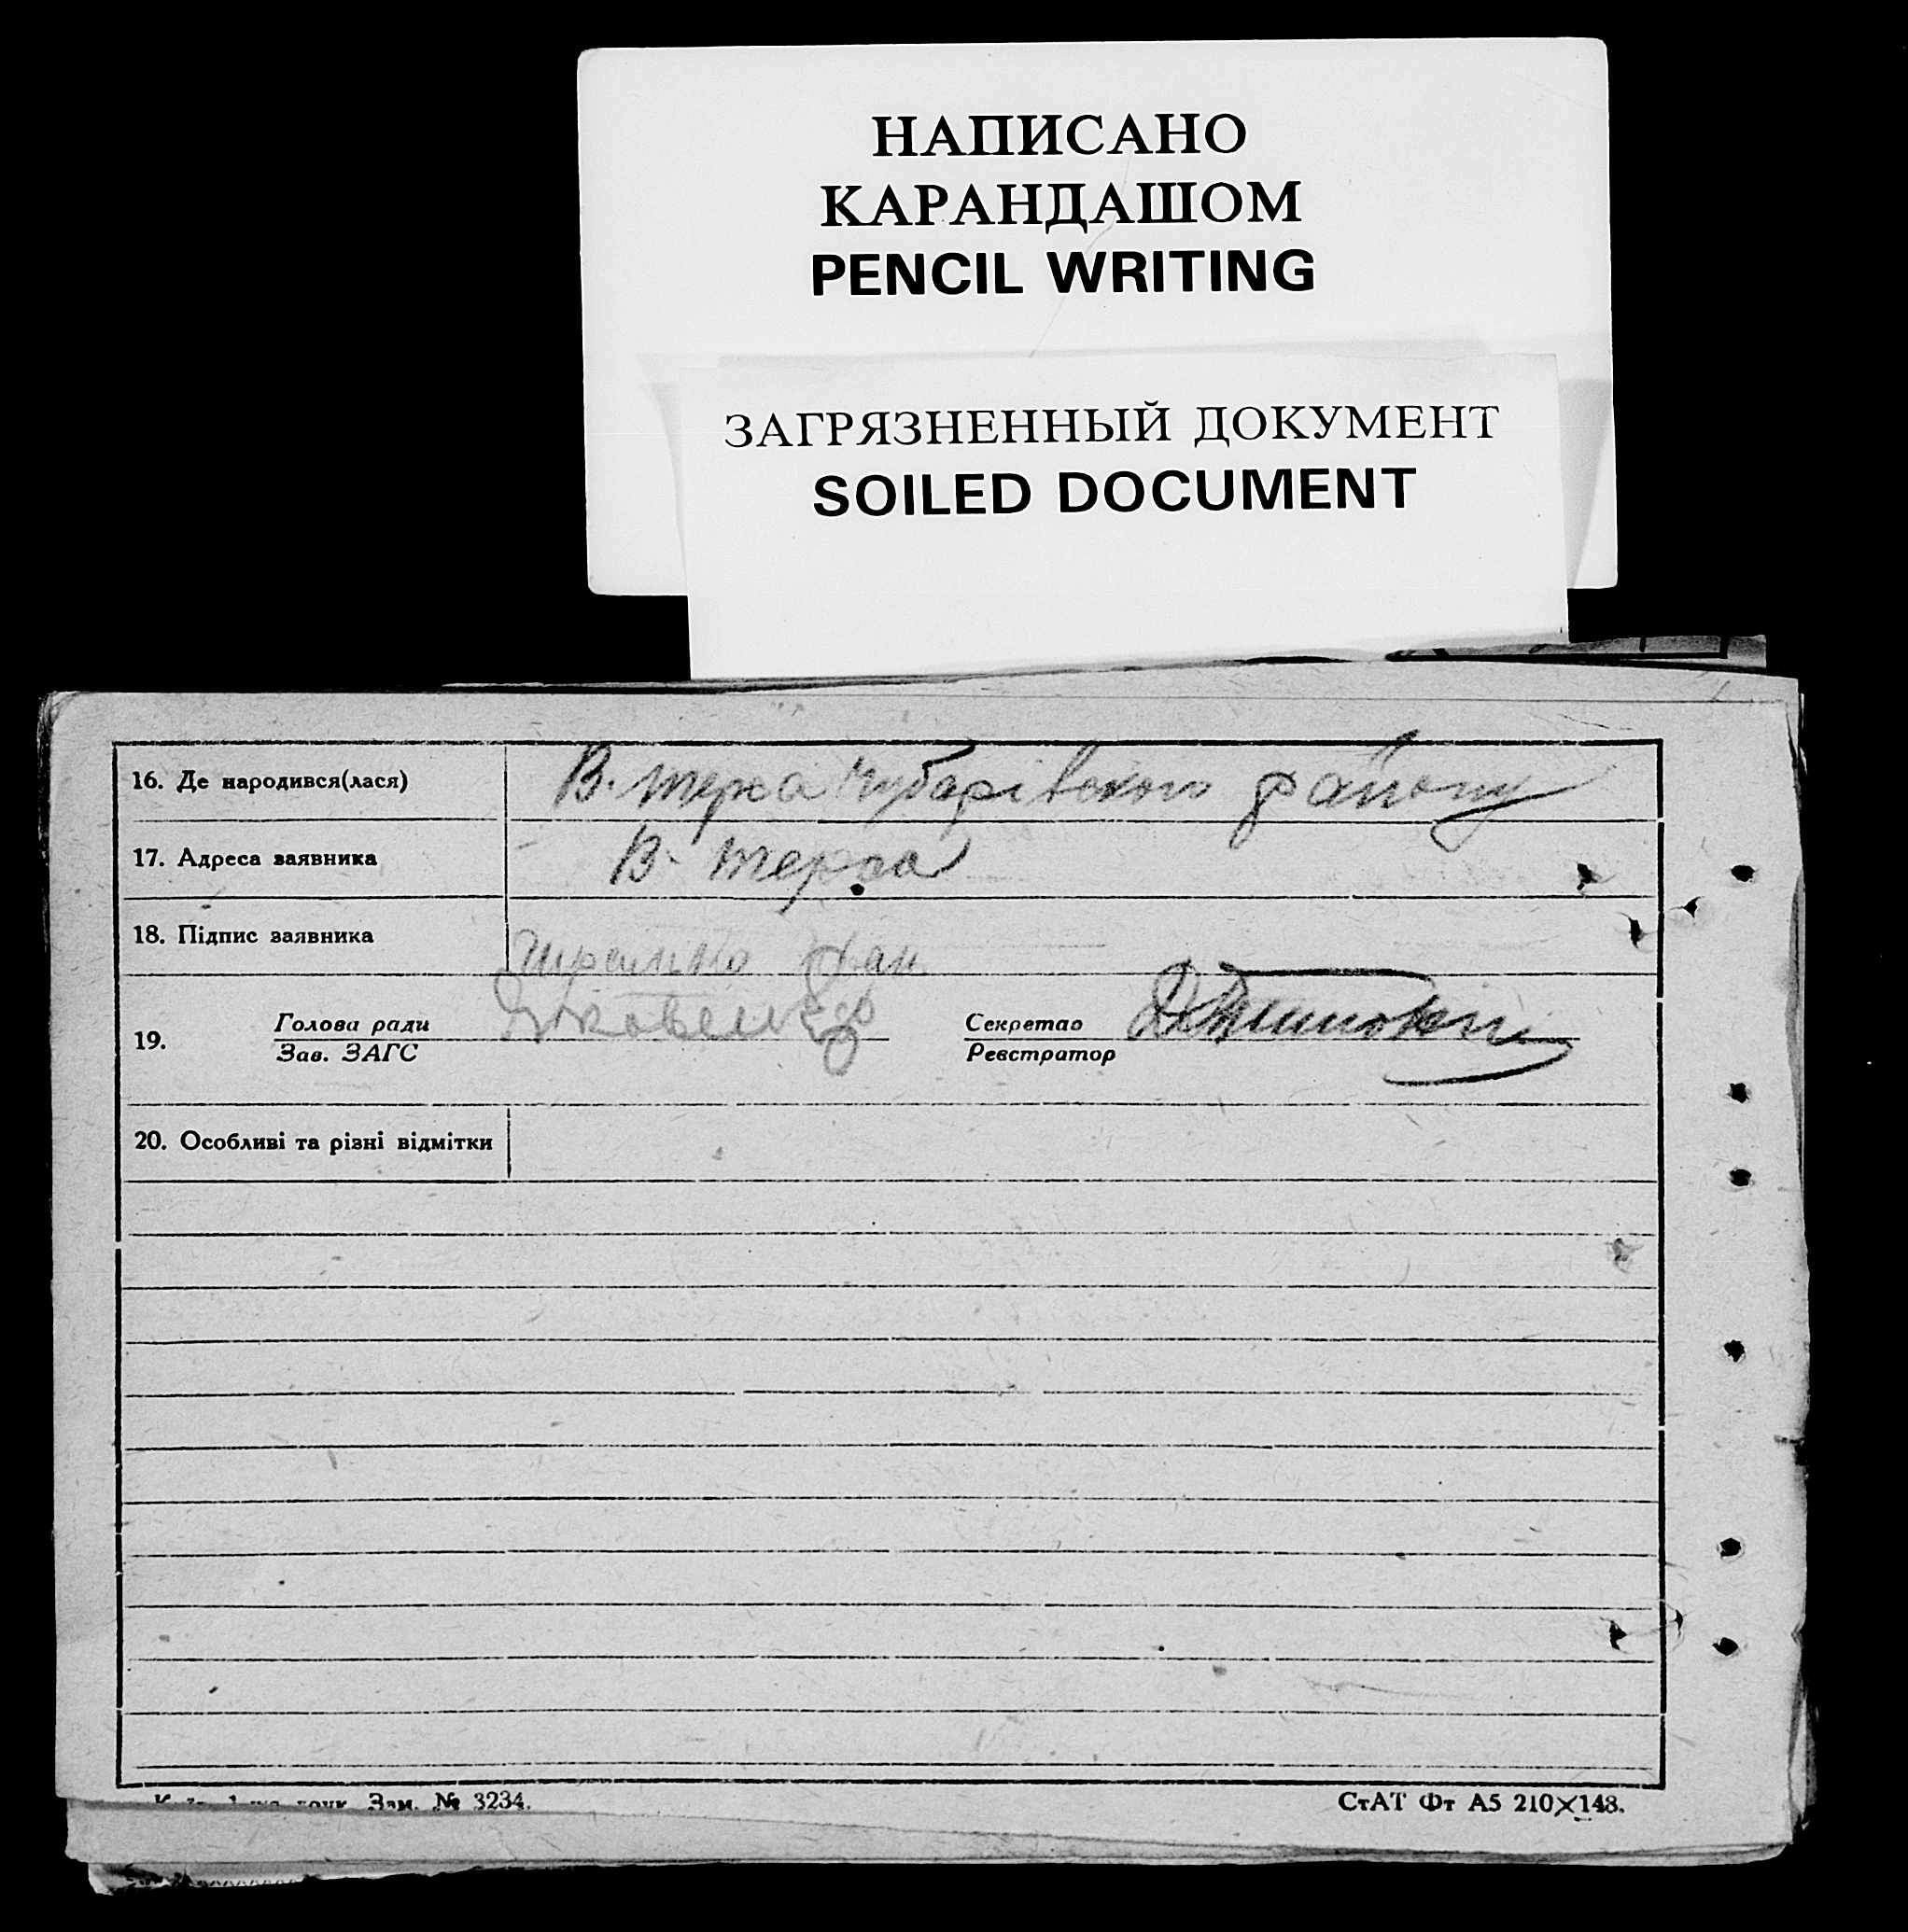 НАПИСАНО
КАРАНДАШОМ
PENCIL WRITING
ЗАГРЯЗНЕННЫЙ ДОКУМЕНТ
SOILED DOCUMENT
16. Де народився(лася) В. терса Чубарівского району
17. Адреса заявника В. терса
18. Підпис заявника
19. Голова ради Яковенко Секретар
Зав. ЗАГС Реєстратор
20. Особливі та різні відмітки
Зам. № 3234. СтАТ Фт А5 210×148.